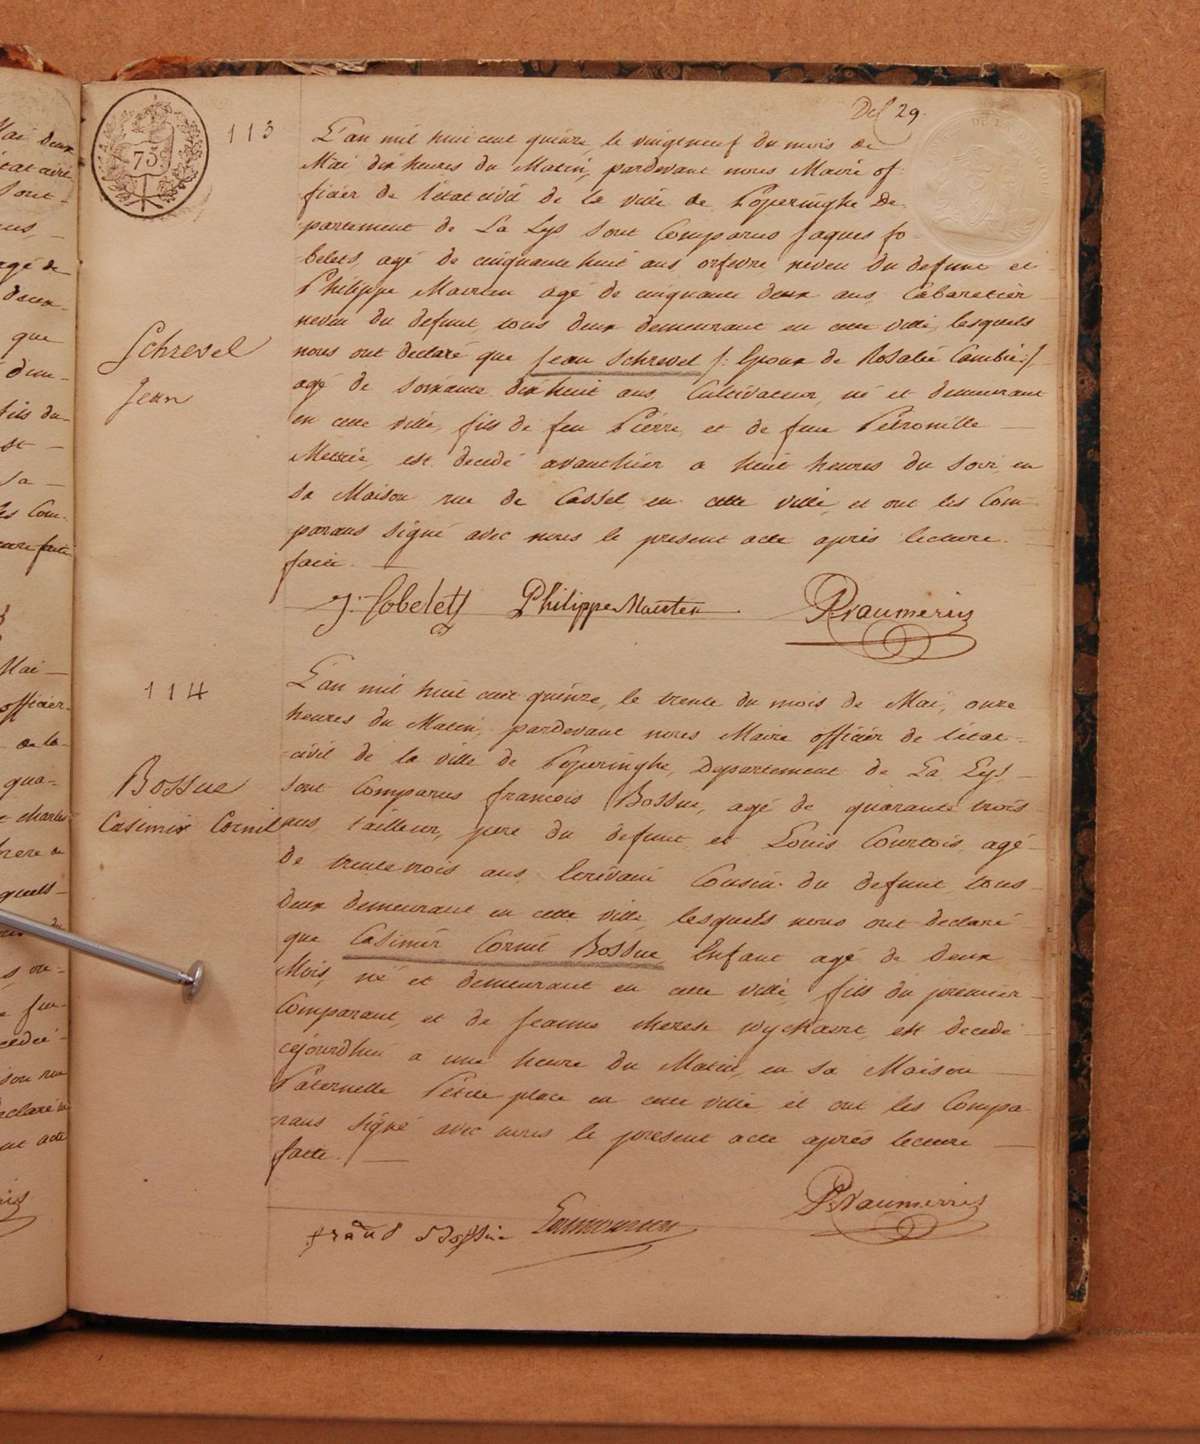 Del 29.
75
113
L'an mil huit cent quinze le vingtneuf du mois de
Mai dix heures du Matin, pardevant nous Maire of-
ficier de l'état civil de la ville de Poperinghe De-
partement de La Lys sont Comparus Jaques Jo-
belets, agé de cinquante huit ans orfevre neveu du defunt et
Philippe Maerten agé de cinquante deux ans, Cabaretier
neveu du defunt, tous deux demeurant en cette ville, lesquels
nous ont declaré que Jean Schrevel /: Epoux de Rosalie Cambie :/
agé de soixante dixhuit ans, Cultivateur, né et demeurant
en cette ville, fils de feu Pierre, et de feue Petronille
est decedé avanthier a huit heures du soir, en
sa Maison rue de Cassel en cette ville, et ont les Com-
parans signé avec nous le present acte après lecture
faite.
Schrevel
Jean
J: Jobelets Philippe Maerten
114
L'an mil huit cent quinze, le trente du mois de Mai, onze
heures du Matin, pardevant nous Maire officier de l'état-
civil de la ville de Poperinghe, Departement de La Lys,
sont Comparus francois Bossue, agé de quarante trois
ans, tailleur, pere du defunt et Louis Courtois, agé
de trente trois ans, Ecrivain Cousin du defunt, tous
deux demeurant en cette ville, lesquels nous ont declaré
que Casimir Cornil Bossue Enfant agé de deux
Mois, né et demeurant en cette ville, fils du premier
Comparant, et de Jeanne therese est decedé
cejourdhui a une heure du Matin, en sa Maison
Paternelle Petite place en cette ville et ont les Compa-
rans signé avec nous le present acte après lecture
faite. /
Bossue
Casimir Cornil